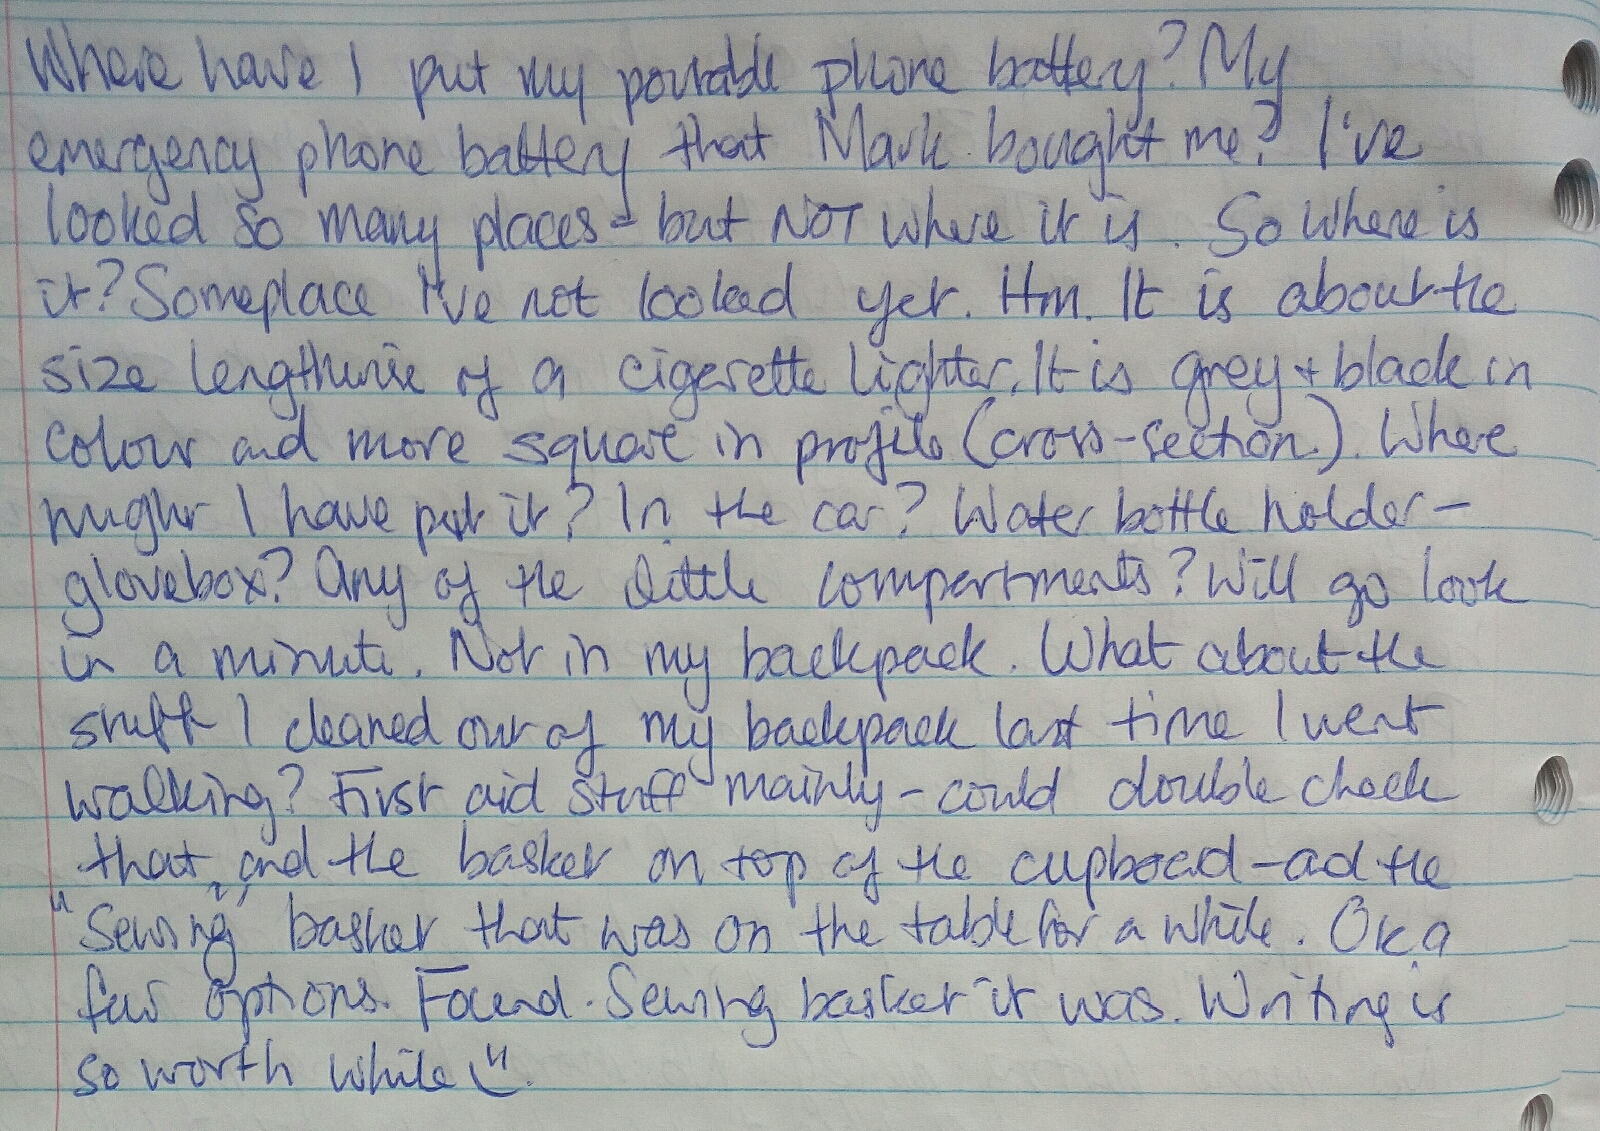 Where have I put my portable phone battery? My
emergency phone battery that Mark bought me? I've
looked so many places - but NOT where it is. So where is
it? Someplace I've not looked yet. Hm. It is about the
size lengthwise of a cigerette lighter. It is grey + black in
colour and more square in profile (cross-section). Where
might I have put it? In the car? Water bottle holder -
glovebox? Any of the little compartments? Will go look
in a minute. Not in my backpack. What about the
stuff I cleaned out of my backpack last time I went
walking? First aid stuff mainly - could double check
that, and the basket on top of the cupboard - and the
"Sewing" basket that was on the table for a while. OK, a
few options. Found. Sewing basket it was. Writing is
so worth while ü.